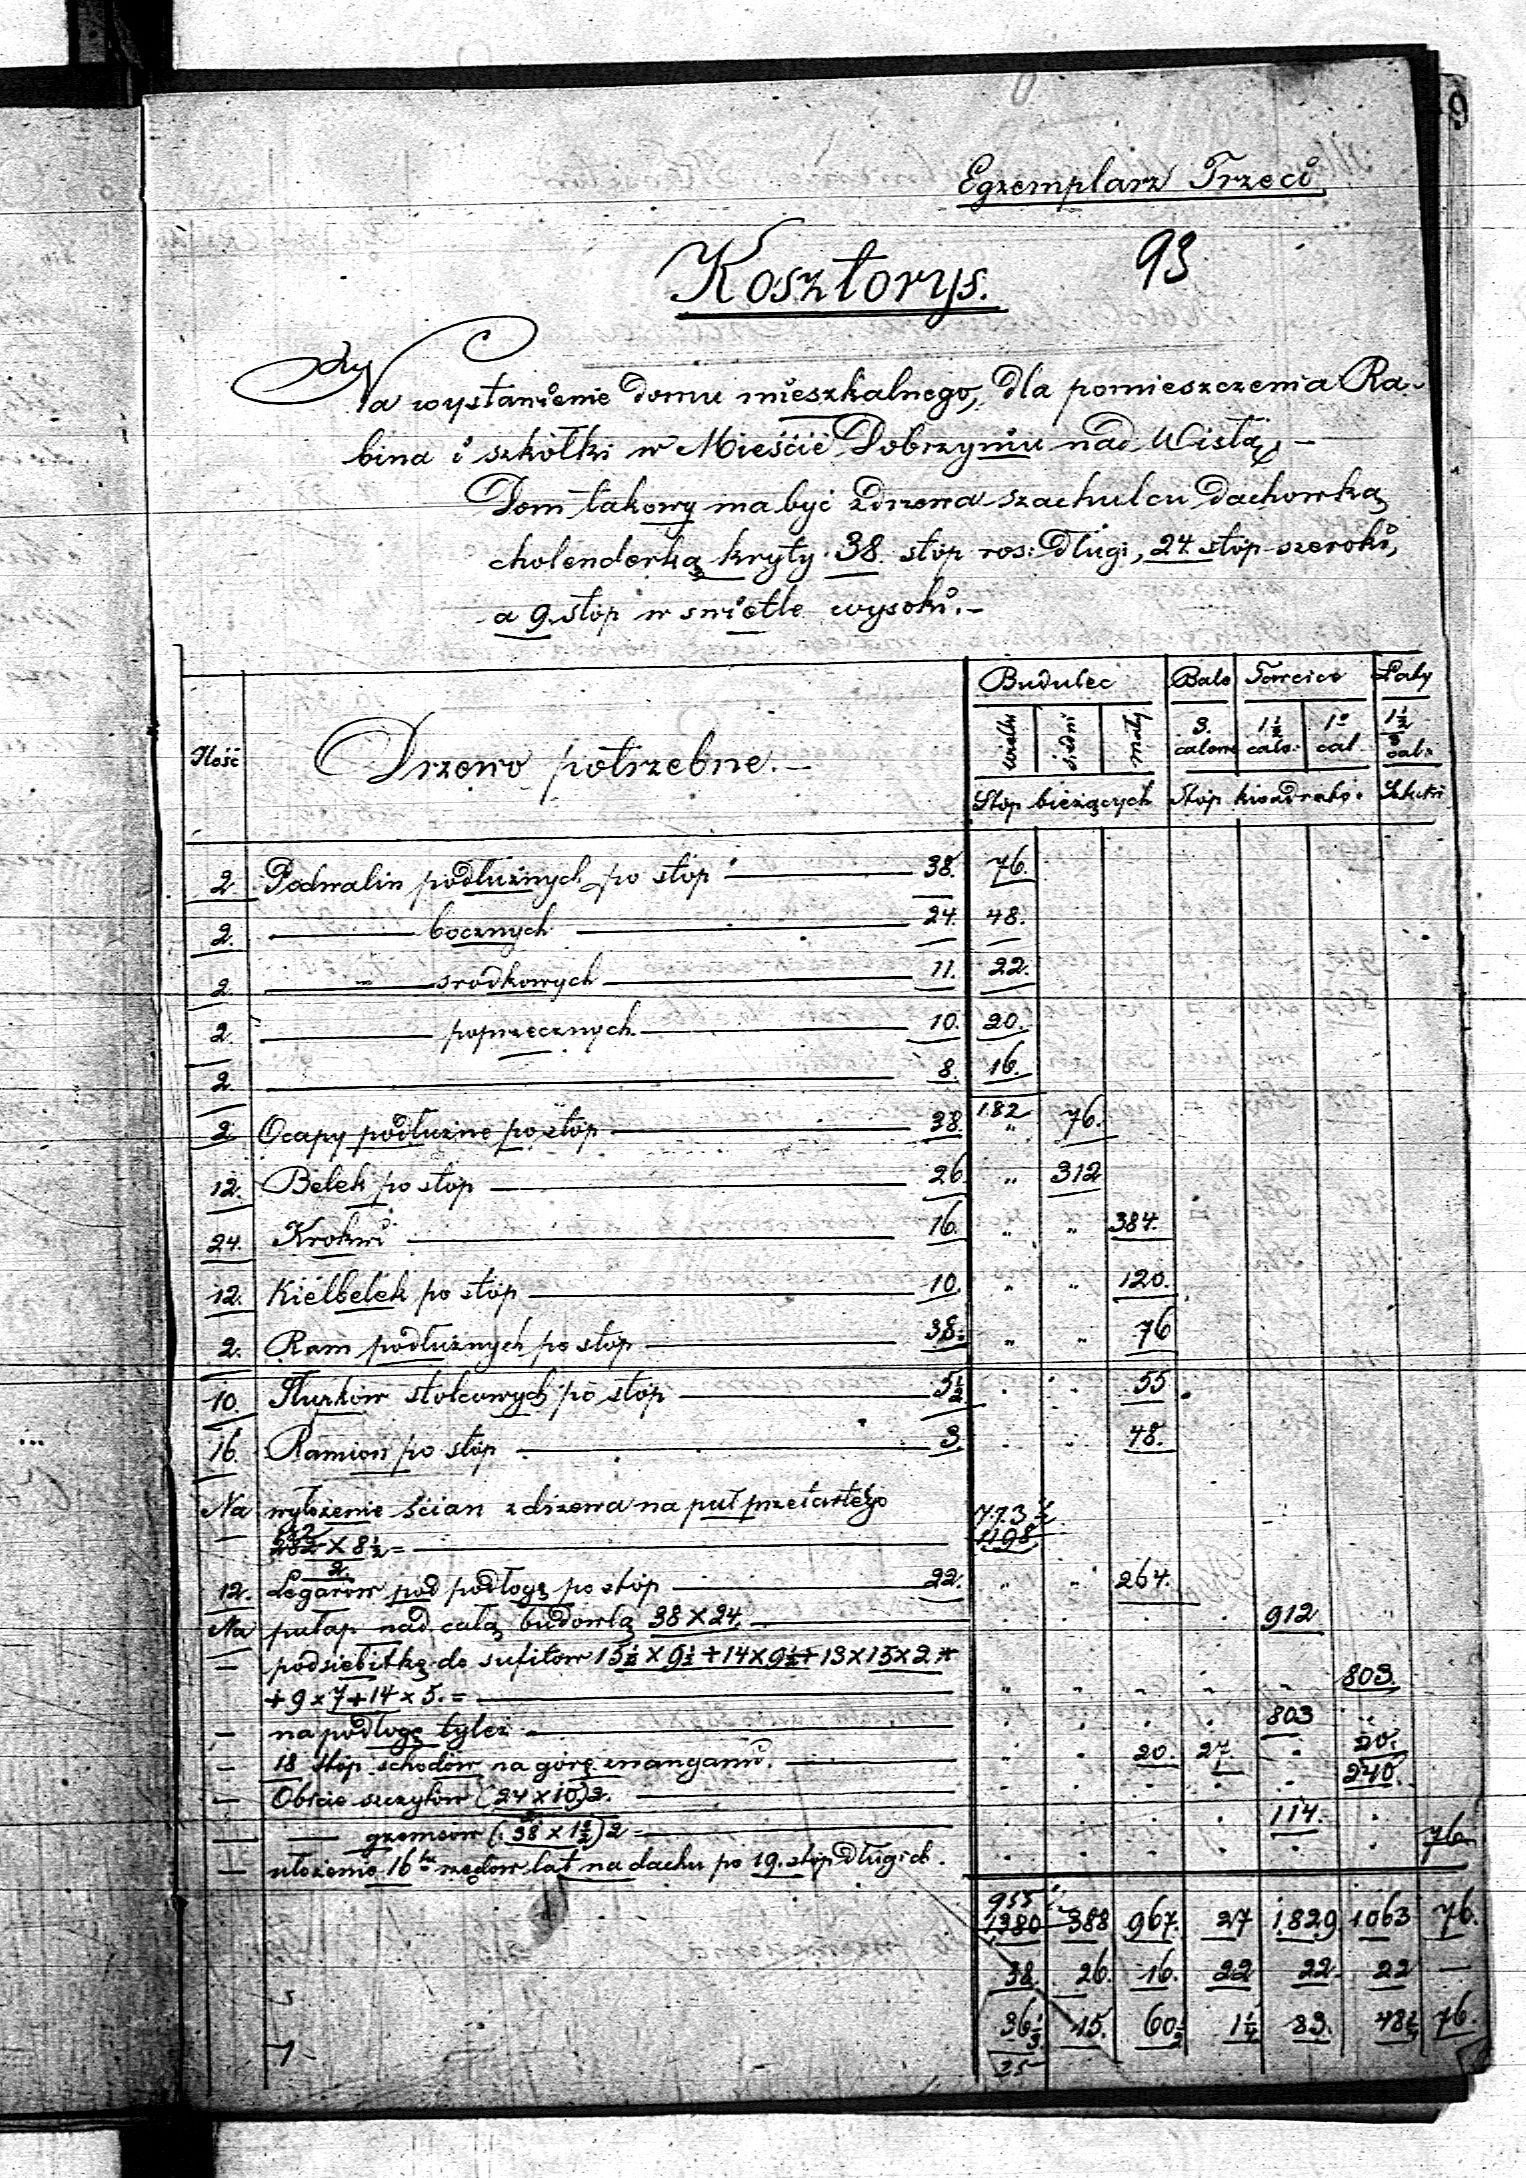 Egzemplarz Trzeci
93
Kosztorys.
Na wystawienie domu mieszkalnego, dla pomieszczenia Ra-
bina i szkółki w Mieście Dobrzyniu nad Wisłą, –
Dom takowy ma być z drzewa szachulcu dachówką
cholenderką kryty 38 stóp ros: długi, 24 stóp szeroki,
a 9. stóp w świetle wysoki. –
Ilość Drzewo potrzebne. – Budulec Bale Tarcice Łaty
wielki średni mały 3. calowe 1½ calo: 1o cal 1½ cal:
Stóp bieżących Stóp kwadrato: Sztuki
2 Podwalin podłużnych po stóp 38. 76.
2. bocznych 24. 48.
2 " srodkowych 11. 22.
2 poprzecznych 10. 20.
2 8. 16.
182
2 Ocapy podłużne po stóp 38 " 76.
12. Belek po stóp 26 " 312
24. Krokwi 16. " " 384.
12. Kielbelek po stóp 10. " " 120.
2. Ram podłużnych po stóp 38. " " 76
10. Słupków stolcowych po stóp 5½ " " 55
16. Ramion po stóp 3. " " 48.
Na wyłożenie ścian z drzewa na puł przetartego 773½
× 8½ = 1198
2
12. Legarów pod podłogę po stóp 22. " " 264.
Na pułap nad całą budowlą 38 × 24. 912
– podsiebitkę do sufitów 15½ × 9½ + 14 × 9½ + 13 × 15 × 2 +
+ 9 × 7 + 14 × 5. = " " " " " 803.
– na podłogę tyleż 803
– 18 stóp schodów na górę z wangami. " " 20. 27. " 20.
– Obicie szczytów (24 × 10.)2. 240.
– gzemsów (38 × 1½)2 = 114.
– ułożenie 16tu rzędów łat na dachu po 19. stóp długich. 76
955
1380 388 967. 27 1829 1063 76.
38. 26. 16. 22 22. 22 –
36⅓ 15. 60½ 1¼ 83. 48¼ 76.
25